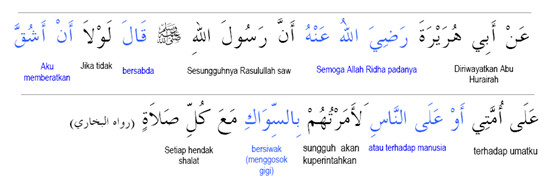 عَنْ أَبِي هُرَيْرَةَ رَضِيَ اللهُ عَنْهُ أَنَّ رَسُولَ اللهِ ﷺ قَالَ لَوْلَا أَنْ أَشُقَّ
Diriwayatkan Abu Hurairah Semoga Allah Ridha padanya Sesungguhnya Rasulullah saw bersabda Jika tidak Aku memberatkan
عَلَى أُمَّتِي أَوْ عَلَى النَّاسِ لَأَمَرْتُهُمْ بِالسِّوَاكِ مَعَ كُلِّ صَلَاةٍ (رواه البخاري)
terhadap umatku atau terhadap manusia sungguh akan kuperintahkan bersiwak (menggosok gigi) Setiap hendak shalat